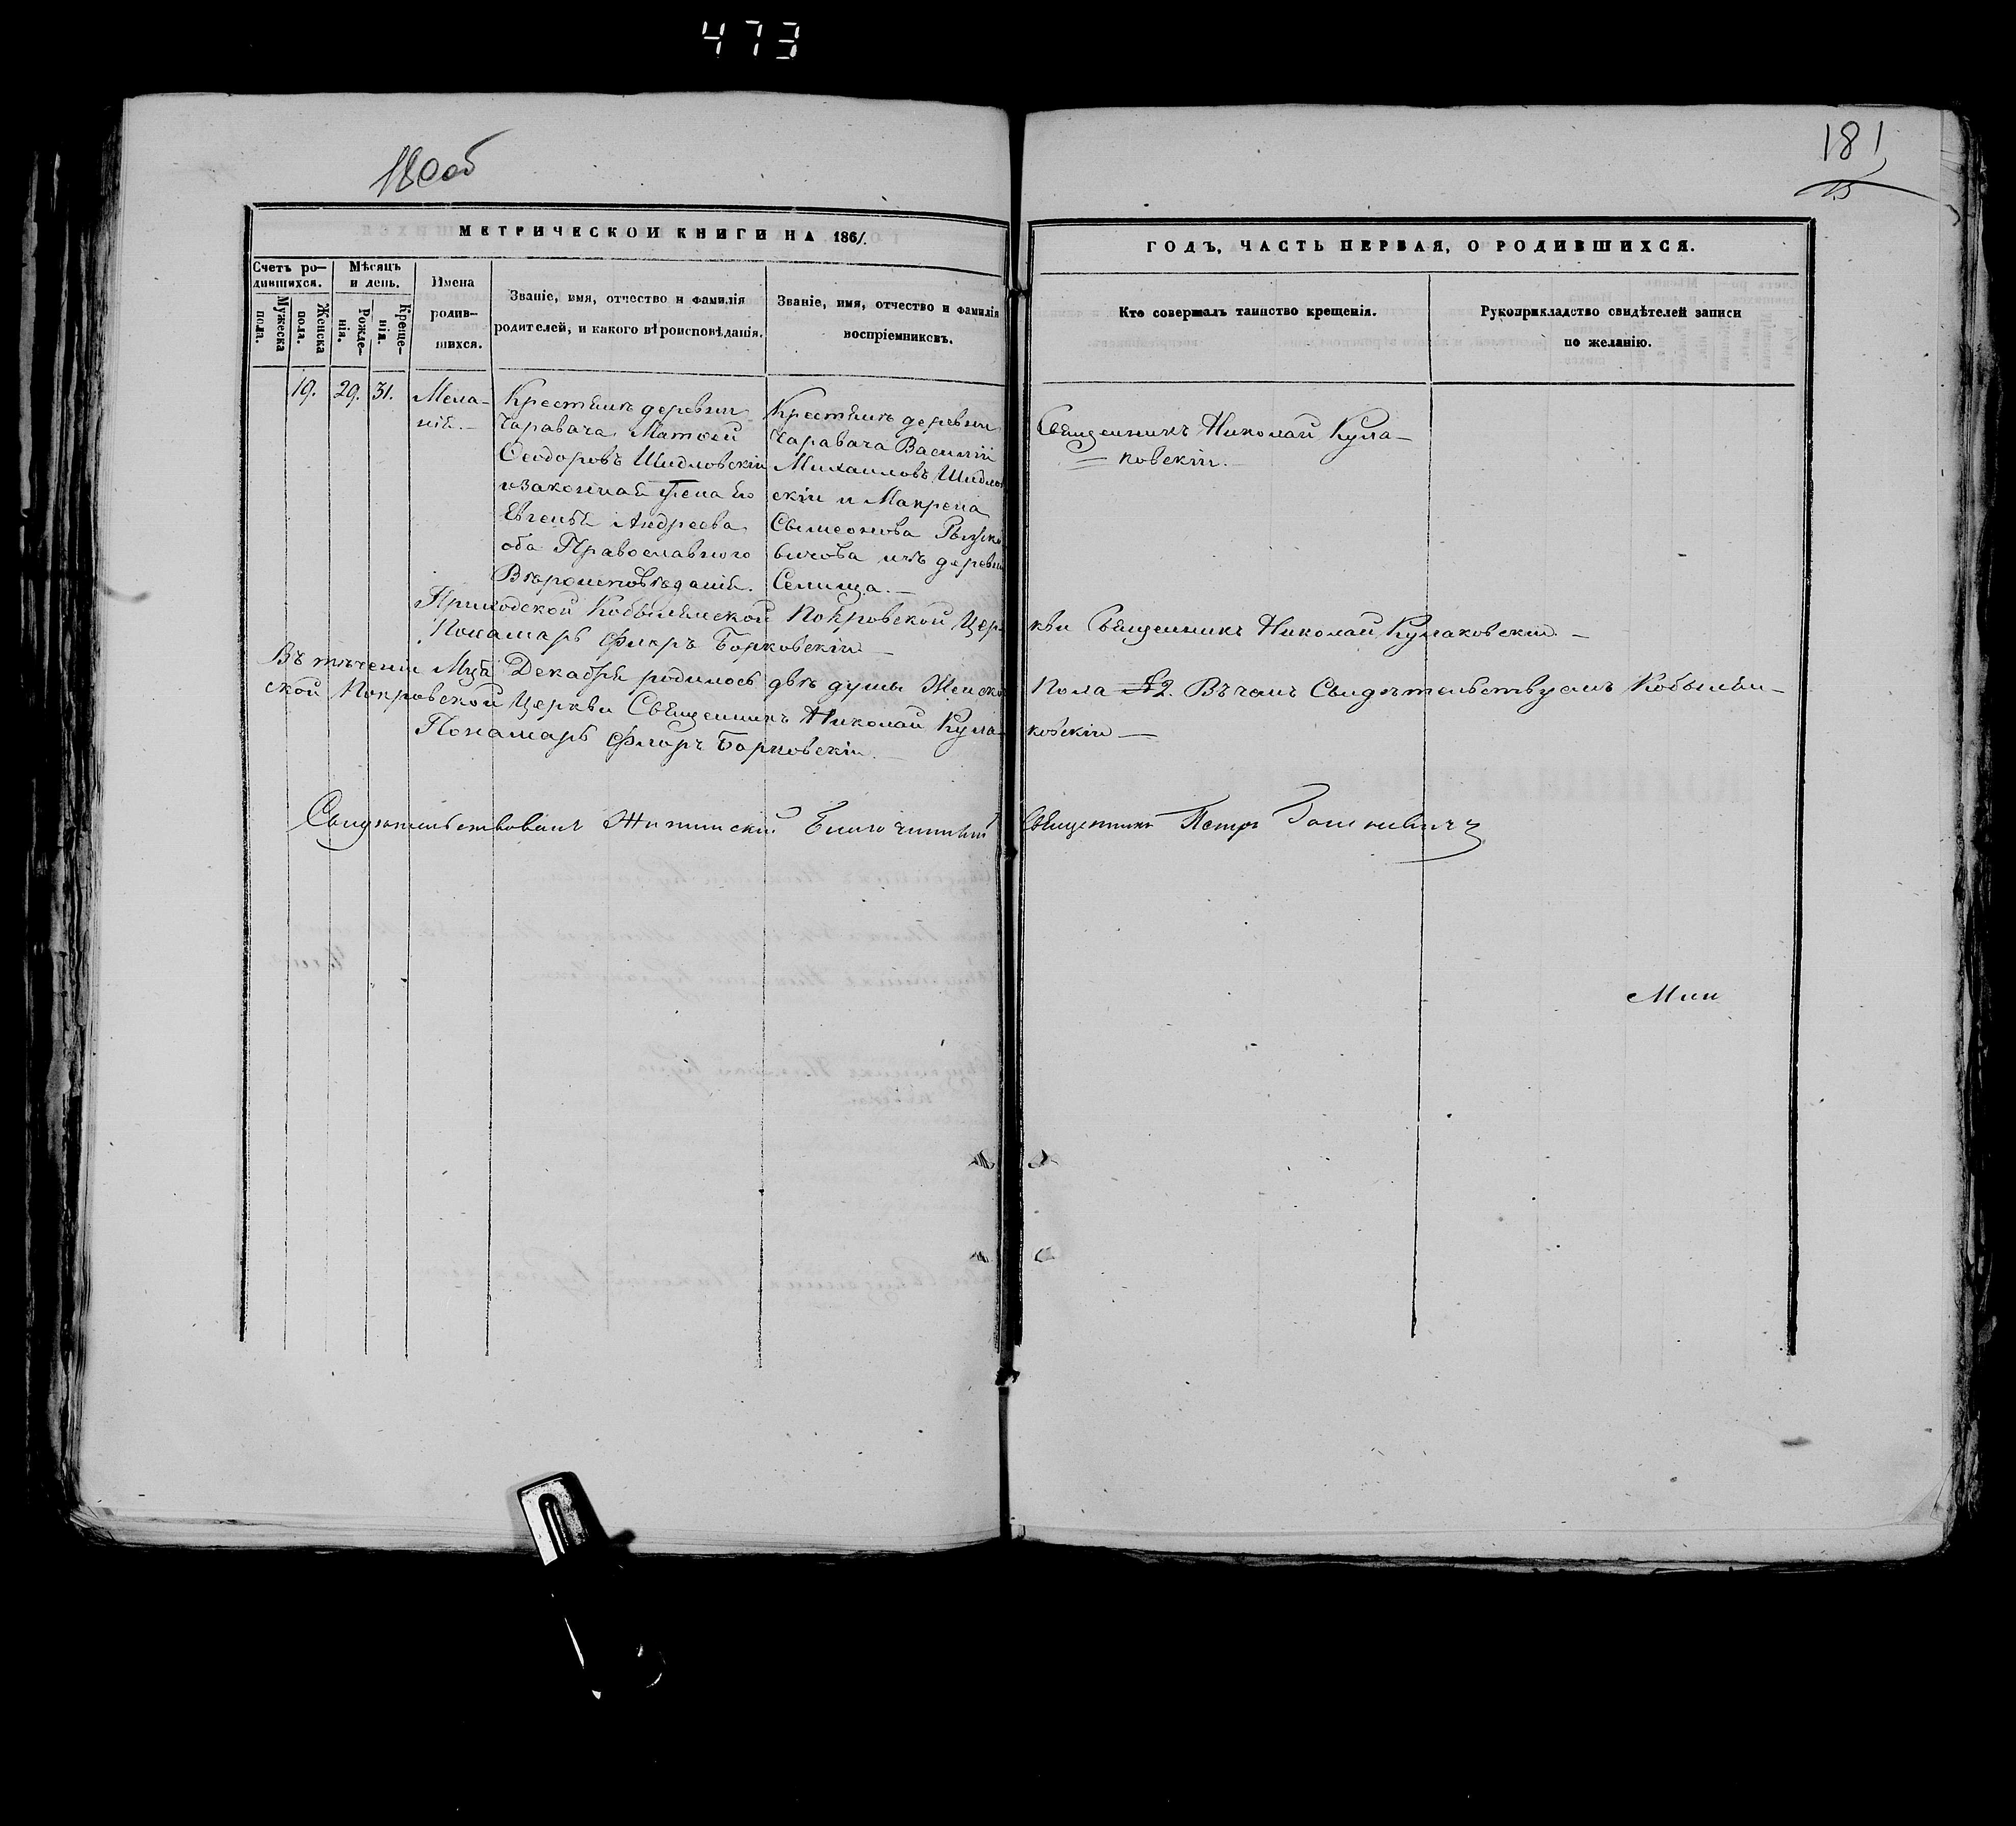 473
180об
181
МЕТРИЧЕСКОЙ КНИГИ НА 1861.
ГОДЪ, ЧАСТЬ ПЕРВАЯ, О РОДИВШИХСЯ.
Счетъ ро-
дившихся.
Мужеска
пола.
Женска
пола.
Мѣсяцъ
и день.
Рожде-
нія.
Креще-
нія.
Имена
родив-
шихся.
Званіе, имя, отчество и фамилія
родителей, и какого вѣроисповѣданія.
Званіе, имя, отчество и фамилія
воспріемниковъ.
Кто совершалъ таинство крещенія.
Рукоприкладство свидѣтелей записи
по желанію.
19.
29.
31.
Мела-
нія.-
Крестянъ деревни
Чаравача Матѳей
Ѳеодоровъ Шидловскій
и законная жена его
Евгенія Андреева
оба Православнаго
Вѣроисповѣданія.
Крестянъ деревни
Чаравача Василій
Михаиловъ Шидлов
скій и Макрена
Сымеонова
вичова изъ деревни
Селища.-
Священникъ Николай Кула-
= ковскій.-
Приходской Кобылянской Покровской Цер- кви Священникъ Николай Кулаковскій -
Понамаръ Флоръ Борковскій -
Въ теченіи Мца Декабря родилось двѣ души Женска Пола 2. Въ чемъ Свидѣтельствуемъ Кобылян-
ской Покровской Церкви Священникъ Николай Кула- ковскій -
Понамаръ Флоръ Борковскій. -
Свидѣтельствовалъ Благочинный Священникъ Петръ
Мин